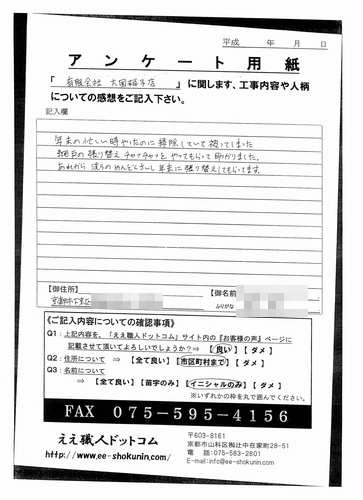 平成 年 月 日
アンケート用紙
「 有限会社 大国硝子店 」に関します、工事内容や人柄
についての感想をご記入下さい。
記入欄
年末の忙しい時やったのに掃除していて破ってしまった
網戸の張り替え チャッチャッと やってもらって 助かりました。
あれから 残りの めんどくさいし 年末に 張り替えしてもらってます
【御住所】 【御名前】
京都市下京区 ふりがな
《ご記入内容についての確認事項》
Q1:上記内容を、「ええ職人ドットコム」サイト内の『お客様の声』ページに
記載させて頂いてよろしいでしょうか?⇒【良い】【ダメ】
Q2:住所について ⇒ 【全て良い】【市区町村まで】【ダメ】
Q3:名前について
⇒ 【全て良い】【苗字のみ】【イニシャルのみ】【ダメ】
※いずれかの枠を丸で囲んでください。
FAX 075-595-4156
ええ職人ドットコム
http://www.ee-shokunin.com/
〒603-8161
京都市山科区椥辻中在家町28-51
電 話:075-583-2801
E-mail:info@ee-shokunin.com